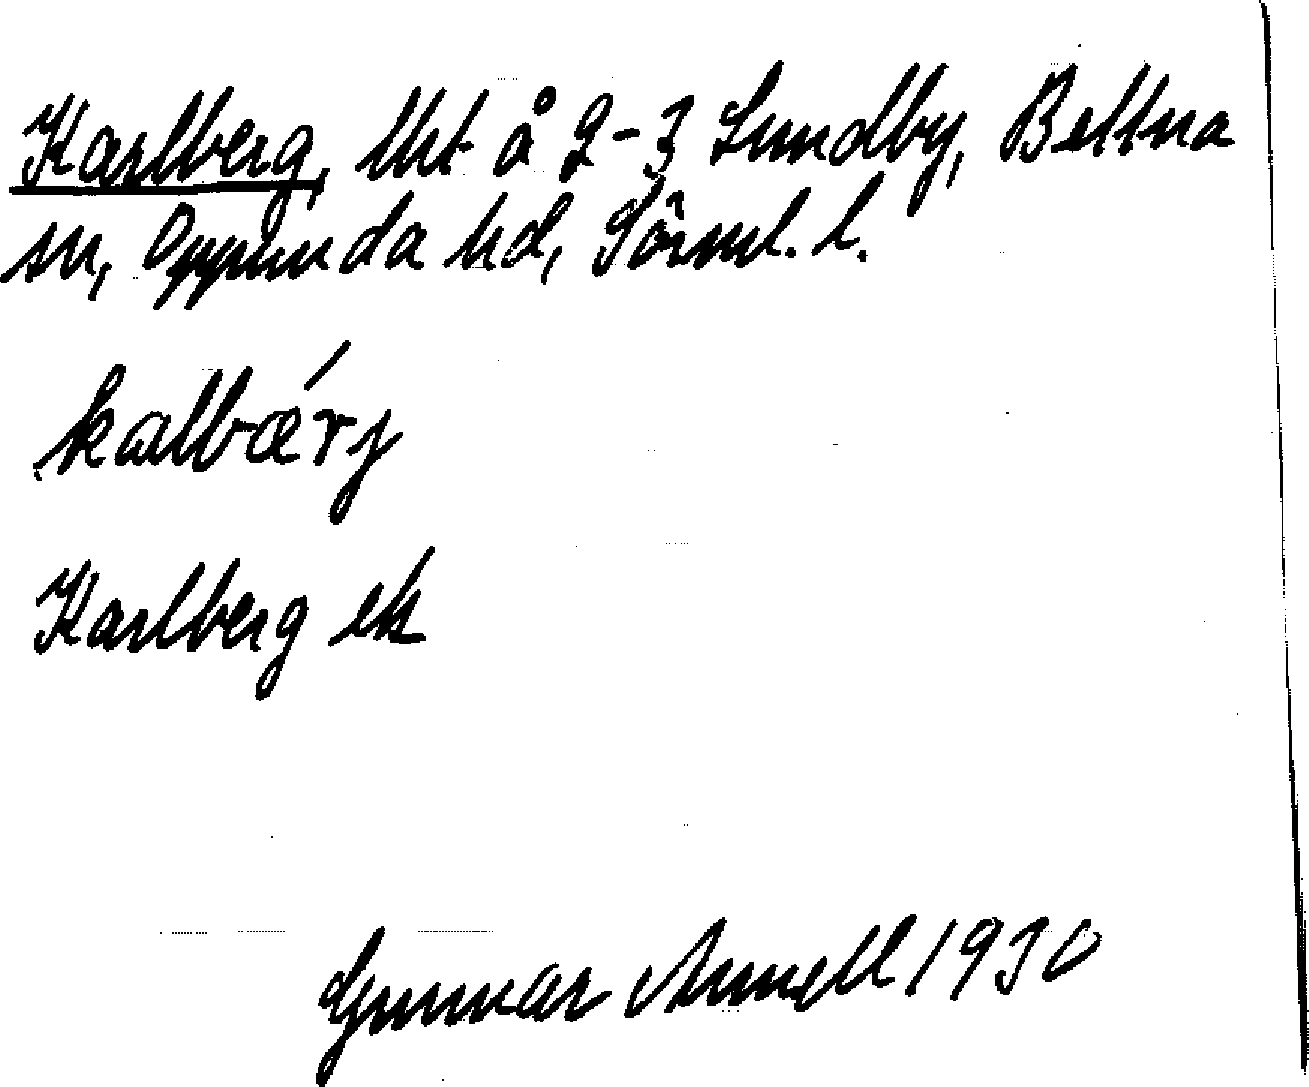 Karlberg, lht å 2-3 Lundby, Bettna
sn, Oppunda hd, Sörml. l.
kalbǽrj
Karlberg ek
Gunnar Arnell 1930